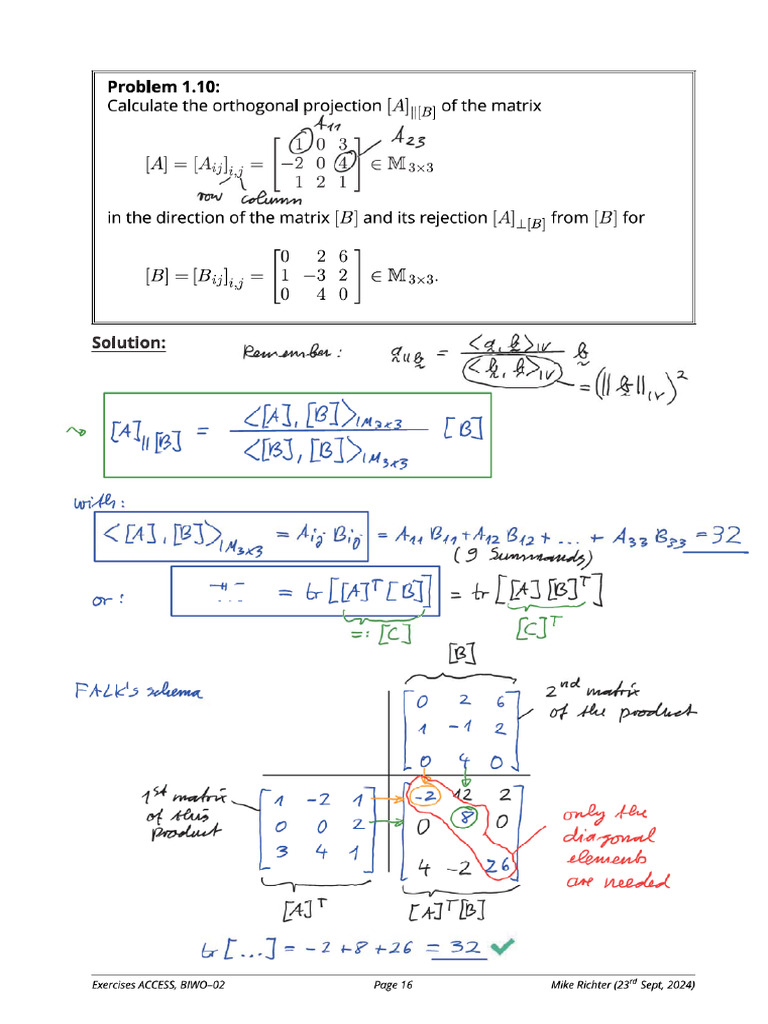 Problem 1.10:
Calculate the orthogonal projection [A]∥[B] of the matrix
A₁₁
[A] = [Aij]i,j = [ 1 0 3 ; −2 0 4 ; 1 2 1 ] ∈ 𝕄3×3
A₂₃
row column
in the direction of the matrix [B] and its rejection [A]⊥[B] from [B] for
[B] = [Bij]i,j = [ 0 2 6 ; 1 −3 2 ; 0 4 0 ] ∈ 𝕄3×3.
Solution:
Remember: a∥b = <a, b>IV / <b, b>IV b
= (‖b‖IV)²
[A]∥[B] = <[A], [B]>𝕄3×3 / <[B], [B]>𝕄3×3 [B]
with:
<[A], [B]>𝕄3×3 = Aij Bij = A₁₁ B₁₁ + A₁₂ B₁₂ + ... + A₃₃ B₃₃ = 32
(9 summands)
or: —"— = tr[[A]ᵀ[B]] = tr[[A][B]ᵀ]
...
=: [C] [C]ᵀ
[B]
FALK's schema
0 2 6
1 -1 2
0 4 0
2nd matrix
of the product
1st matrix
of this
product
1 -2 1
0 0 2
3 4 1
-2 12 2
0 8 0
4 -2 26
only the
diagonal
elements
are needed
[A]ᵀ [A]ᵀ[B]
tr[...] = -2 + 8 + 26 = 32 ✓
Exercises ACCESS, BIWO–02 Page 16 Mike Richter (23rd Sept, 2024)